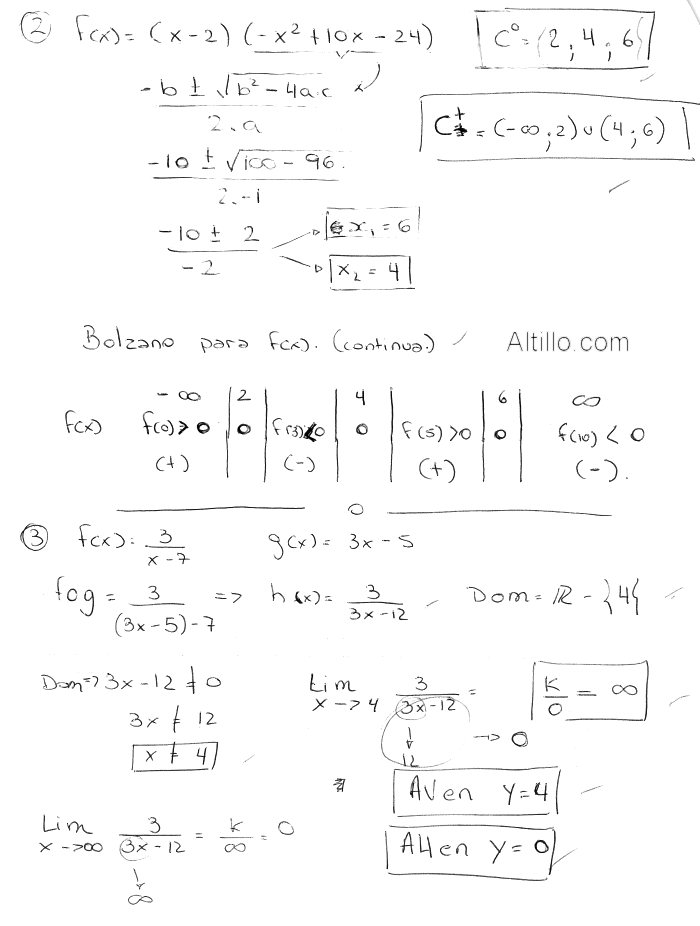 ② f(x) = (x-2) (-x² + 10x - 24)
C⁰ = {2 ; 4 ; 6}
-b ± √b² - 4a.c
2.a
C⁺ = (-∞ ; 2) ∪ (4 ; 6)
-10 ± √100 - 96.
2.-1
-10 ± 2
-2
x₁ = 6
x₂ = 4
Bolzano para f(x). (continua.)
Altillo.com
-∞ 2 4 6 ∞
f(x) f(0) > 0 0 f(3) < 0 0 f(5) > 0 0 f(10) < 0
(+) (-) (+) (-).
③ f(x): 3/x-7 g(x) = 3x - 5
fog = 3/(3x-5)-7 => h(x) = 3/3x-12 Dom = ℝ - {4}
Dom => 3x - 12 ≠ 0
3x ≠ 12
x ≠ 4
Lim x->4 3/3x-12 = K/0 = ∞
↓ 12 -> 0
AV en y = 4
AH en y = 0
Lim x->∞ 3/3x-12 = K/∞ = 0
↓
∞